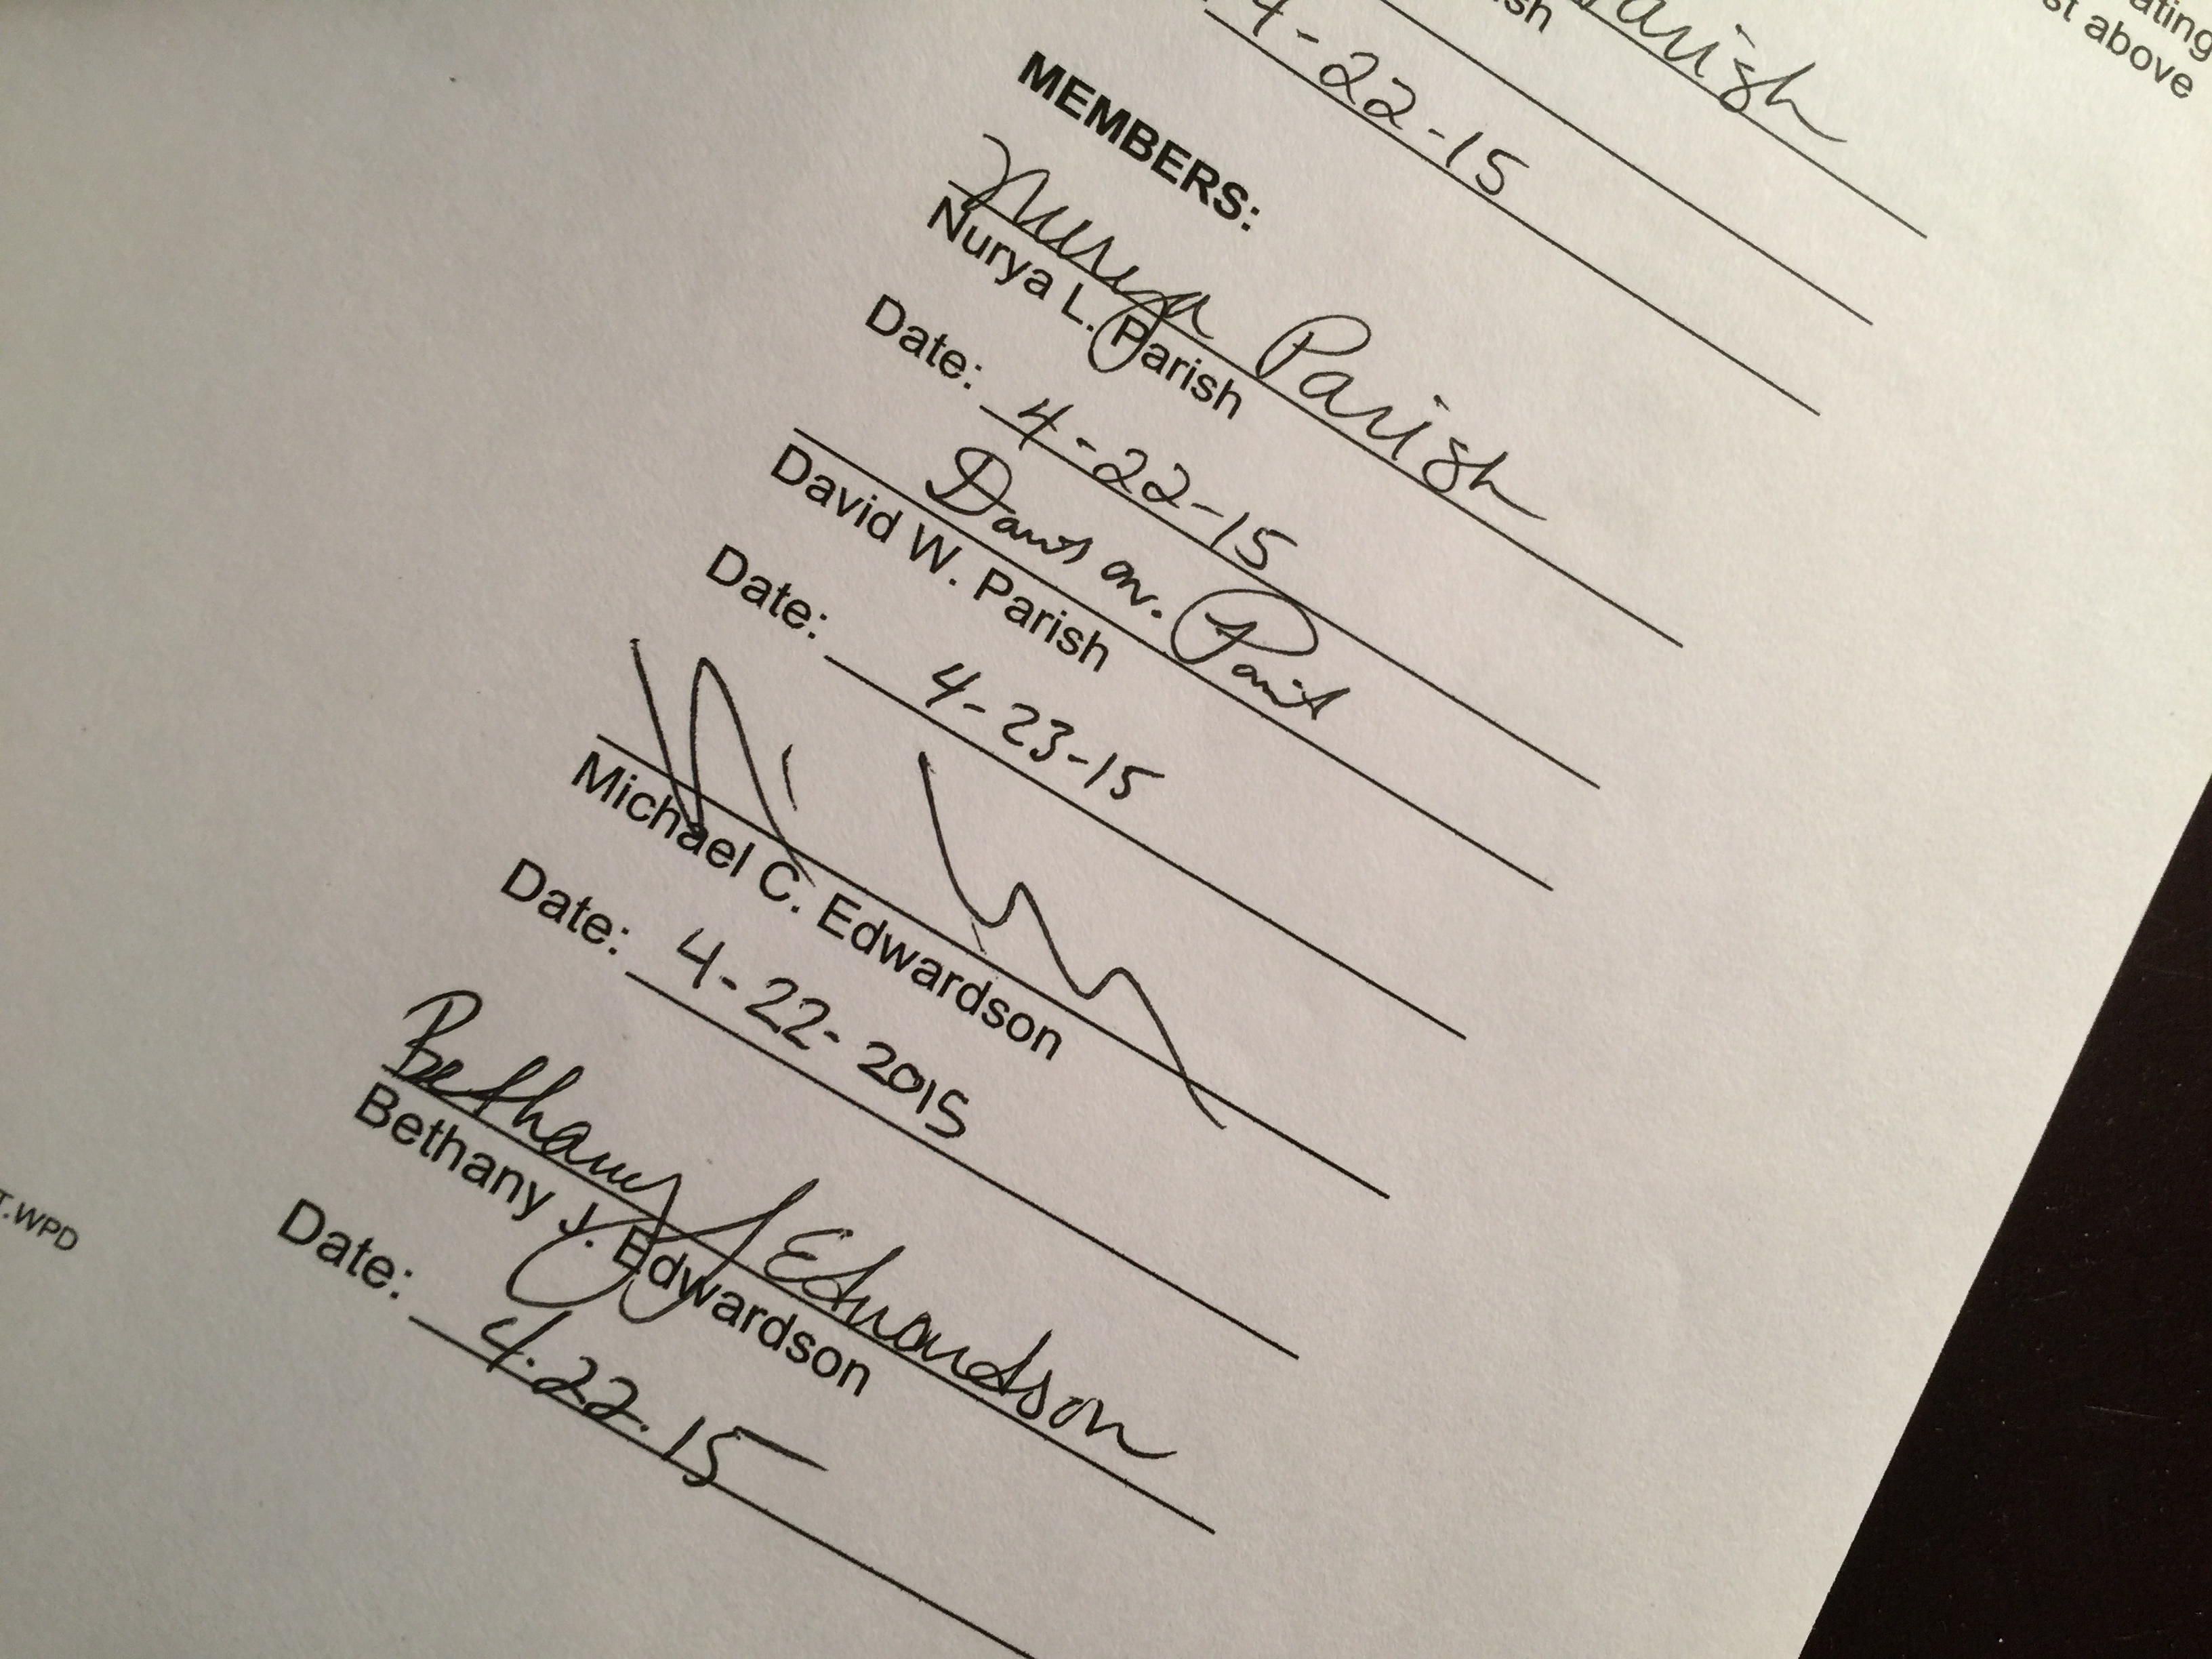 ating
st above
arish
ish
4-22-15
MEMBERS:
Nurya Parish
Nurya L. Parish
Date: 4-22-15
David W. Parish
David W. Parish
Date: 4-23-15
Michael C. Edwardson
Date: 4-22-2015
Bethany J Edwardson
Bethany J. Edwardson
Date: 4.22.15
T.WPD